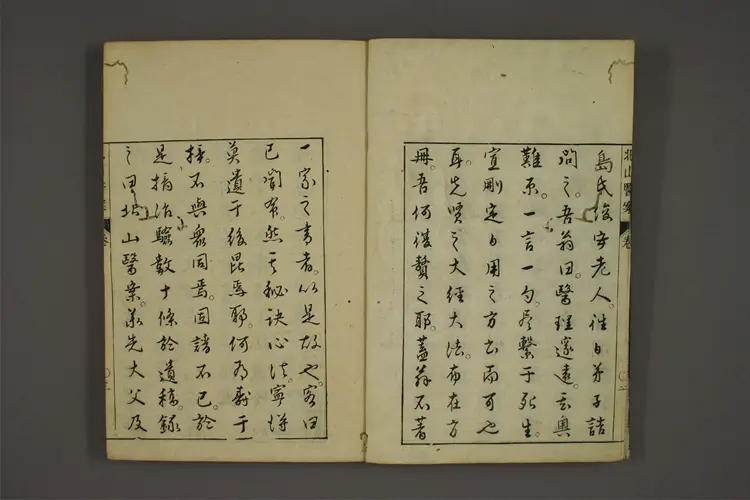 北山醫案 卷
島氏老人。往日弟子詰
問之。吾翁曰醫理邃遠。玄奧
難原。一言一句。繫于死生。
宜刪定日用之方書而可也
耳先賢之大經大法。布在方
冊。吾何復贅之耶。蓋翁不著
一家之書者。以是故也。客曰
已聞。然其秘訣心法。寧得
莫遺于後昆焉耶。何爲壽于
梓。不與衆同焉。固請不已。於
是摘治驗數十條於遺稿。錄
之曰北山醫案。先大父及